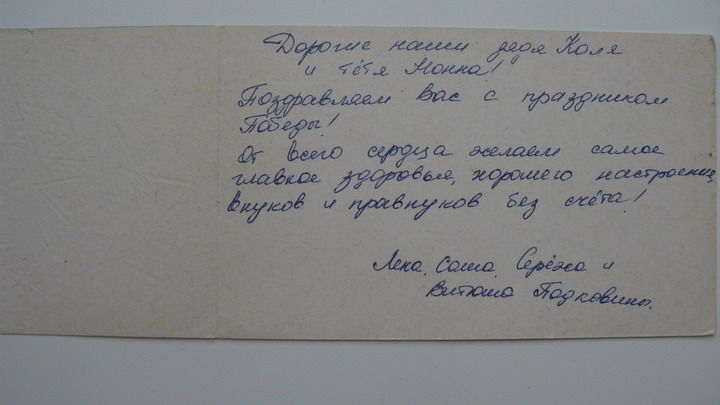 Дорогие наши дядя Коля
и тётя Нонна!
Поздравляем Вас с праздником
Победы!
От всего сердца желаем самое
главное здоровья, хорошего настроения,
внуков и правнуков без счёта!
Лена, Саша, Серёжа и
Витюша Подковины.